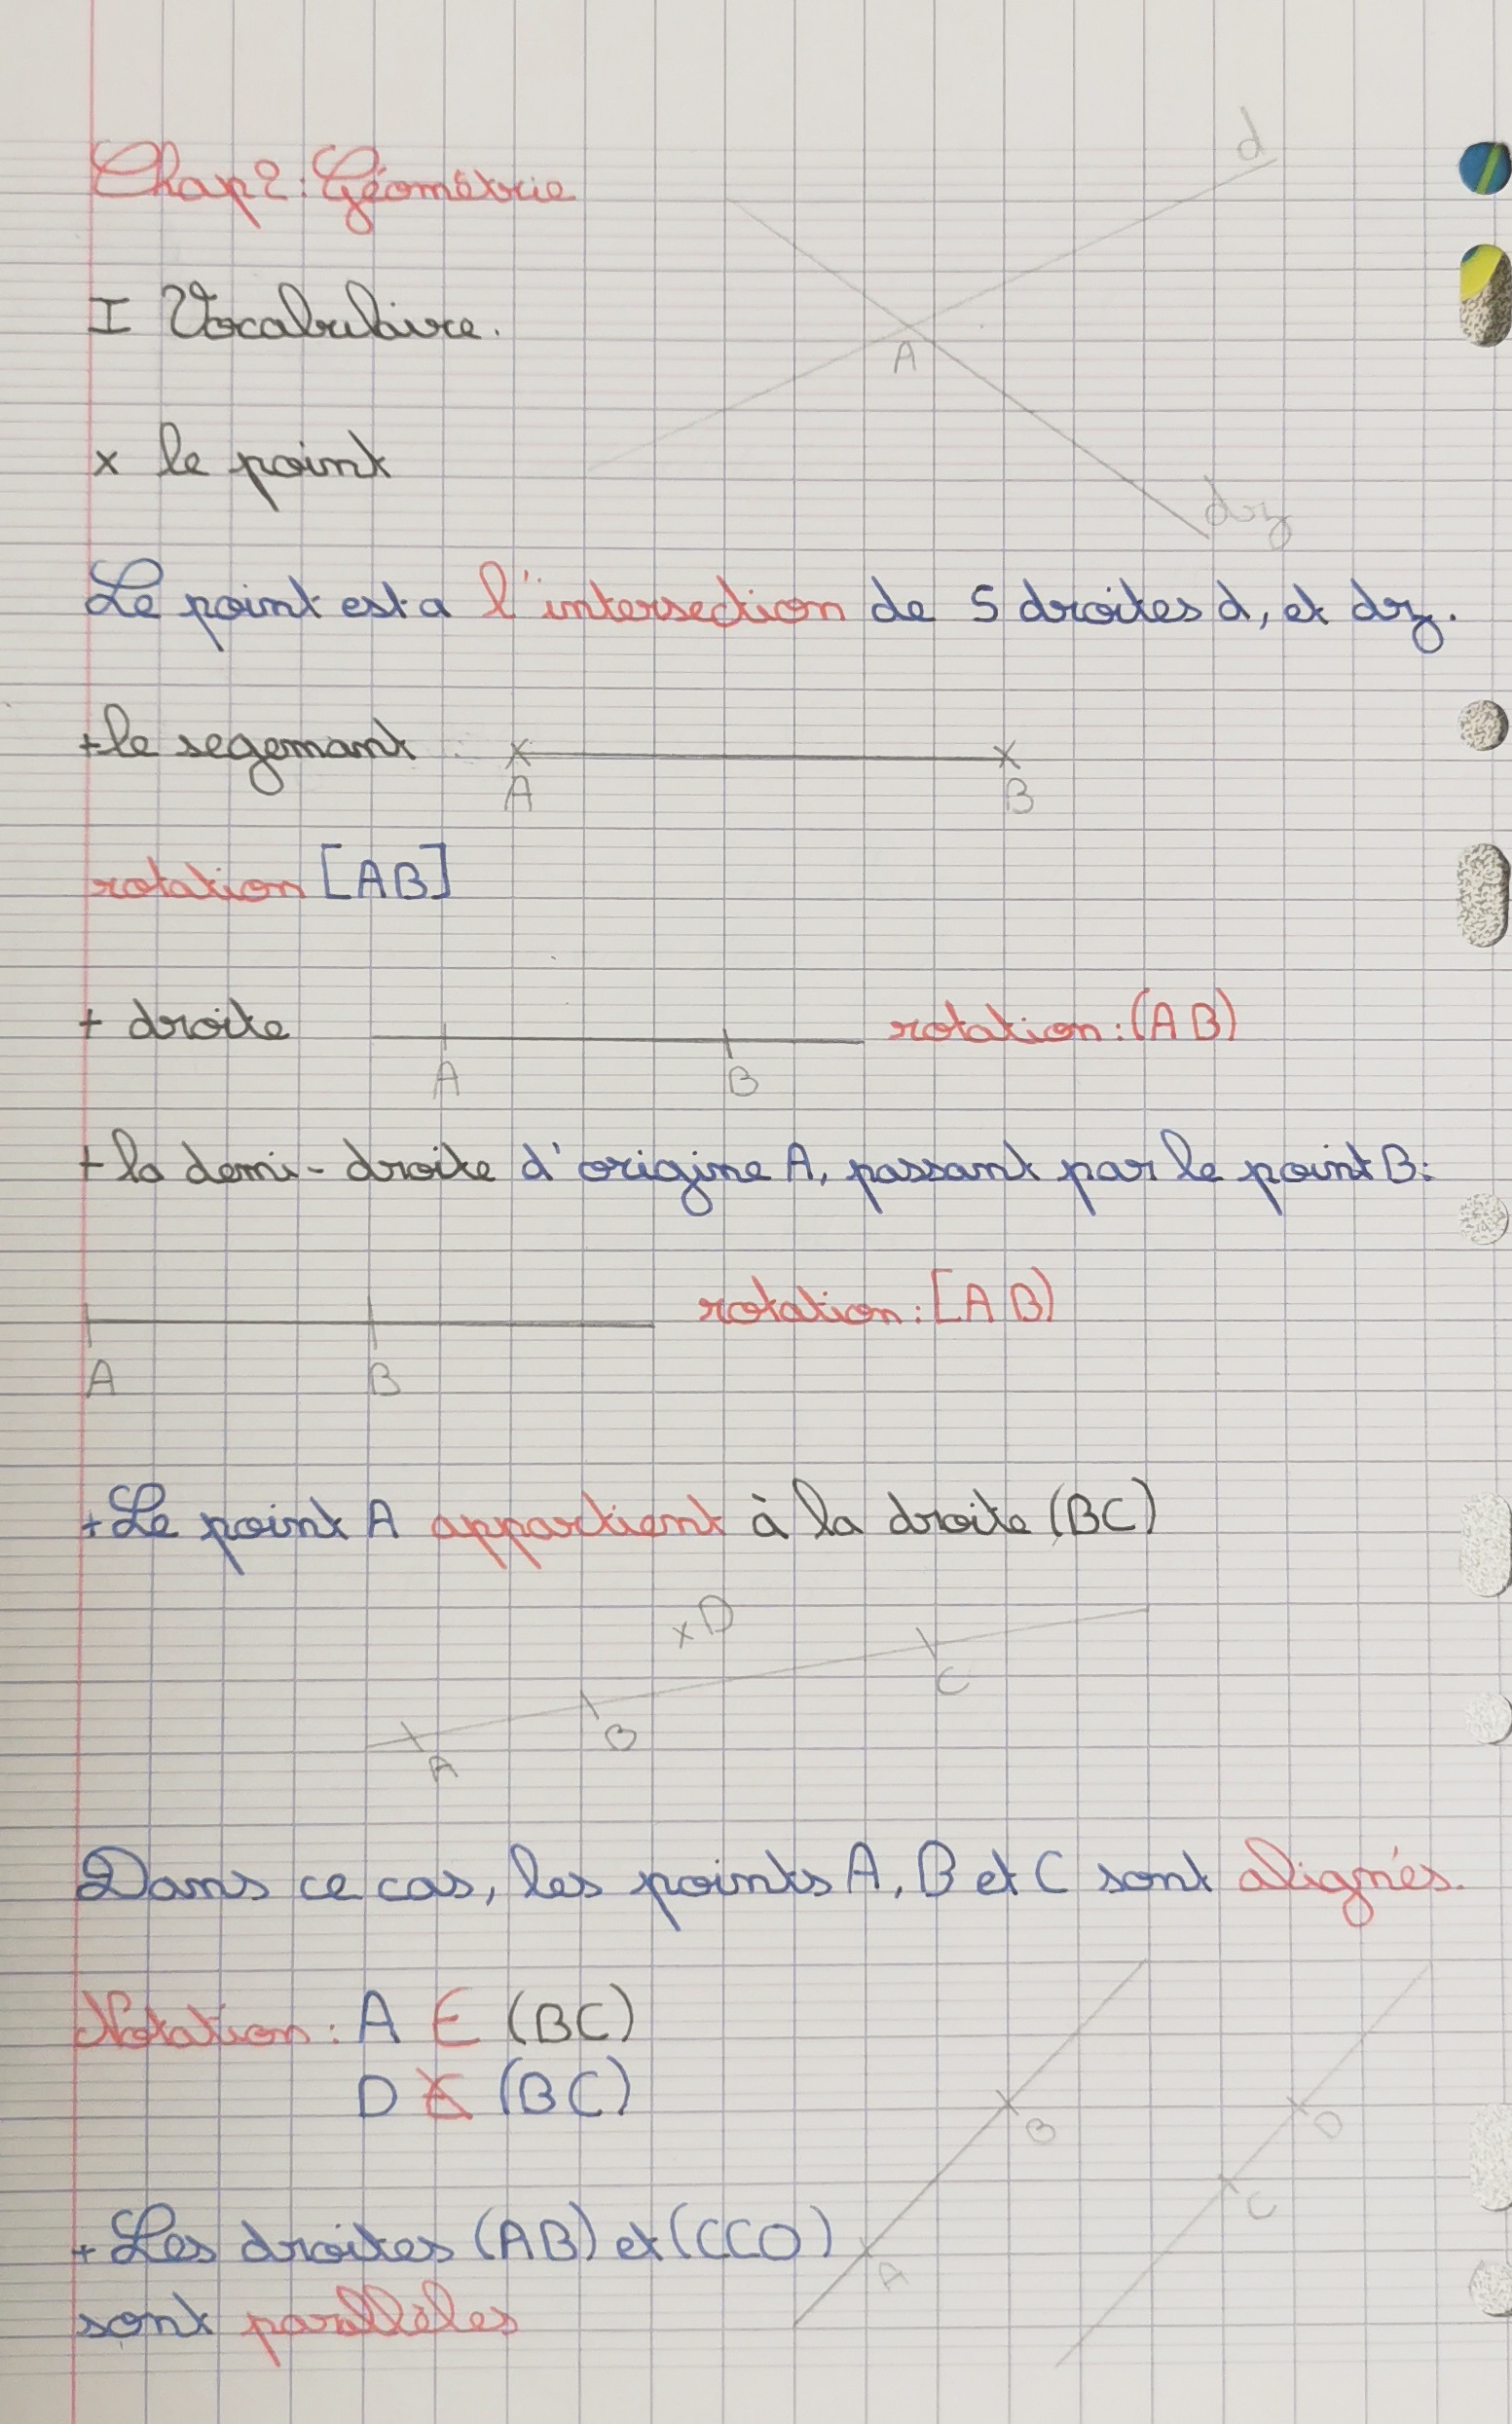 Chap2: Géométrie
d
I Vocabulaire.
A
x le point
dz
Le point est a l'intersection de 5 droites d, et dz.
+le segemant
A B
rotation [AB]
+ droite rotation: (AB)
A B
+ la demi-droite d'origine A, passant par le point B:
rotation: [AB)
A B
+ Le point A appartient à la droite (BC)
xD
C
B
A
Dans ce cas, les points A, B et C sont alignés.
Notation: A ∈ (BC)
D ∉ (BC)
B D
C
+ Les droites (AB) et (CCO)
A
sont parallèles